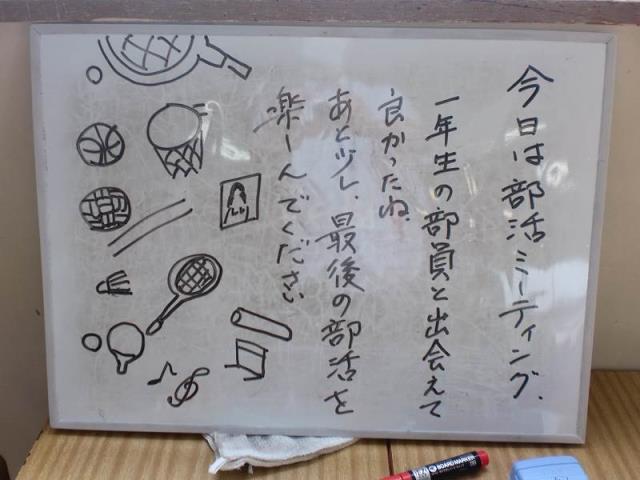 今日は部活ミーティング.
一年生の部員と出会えて
良かったね.
あと少し、最後の部活を
楽しんでください
BOARD MARKER